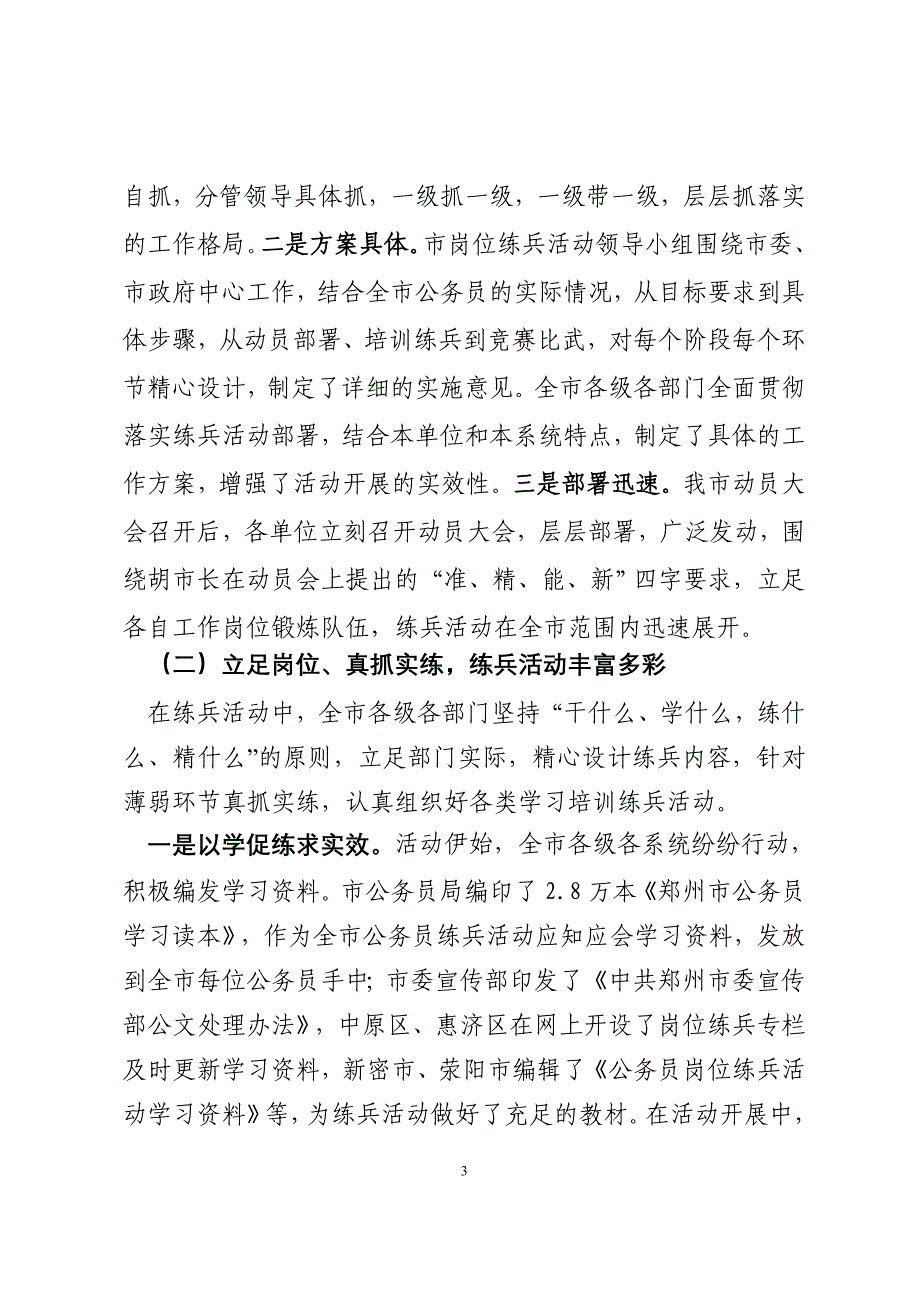 自抓，分管领导具体抓，一级抓一级，一级带一级，层层抓落实
的工作格局。二是方案具体。市岗位练兵活动领导小组围绕市委、
市政府中心工作，结合全市公务员的实际情况，从目标要求到具
体步骤，从动员部署、培训练兵到竞赛比武，对每个阶段每个环
节精心设计，制定了详细的实施意见。全市各级各部门全面贯彻
落实练兵活动部署，结合本单位和本系统特点，制定了具体的工
作方案，增强了活动开展的实效性。三是部署迅速。我市动员大
会召开后，各单位立刻召开动员大会，层层部署，广泛发动，围
绕胡市长在动员会上提出的“准、精、能、新”四字要求，立足
各自工作岗位锻炼队伍，练兵活动在全市范围内迅速展开。
（二）立足岗位、真抓实练，练兵活动丰富多彩
在练兵活动中，全市各级各部门坚持“干什么、学什么，练什
么、精什么”的原则，立足部门实际，精心设计练兵内容，针对
薄弱环节真抓实练，认真组织好各类学习培训练兵活动。
一是以学促练求实效。活动伊始，全市各级各系统纷纷行动，
积极编发学习资料。市公务员局编印了2.8万本《郑州市公务员
学习读本》，作为全市公务员练兵活动应知应会学习资料，发放
到全市每位公务员手中；市委宣传部印发了《中共郑州市委宣传
部公文处理办法》，中原区、惠济区在网上开设了岗位练兵专栏
及时更新学习资料，新密市、荥阳市编辑了《公务员岗位练兵活
动学习资料》等，为练兵活动做好了充足的教材。在活动开展中，
3